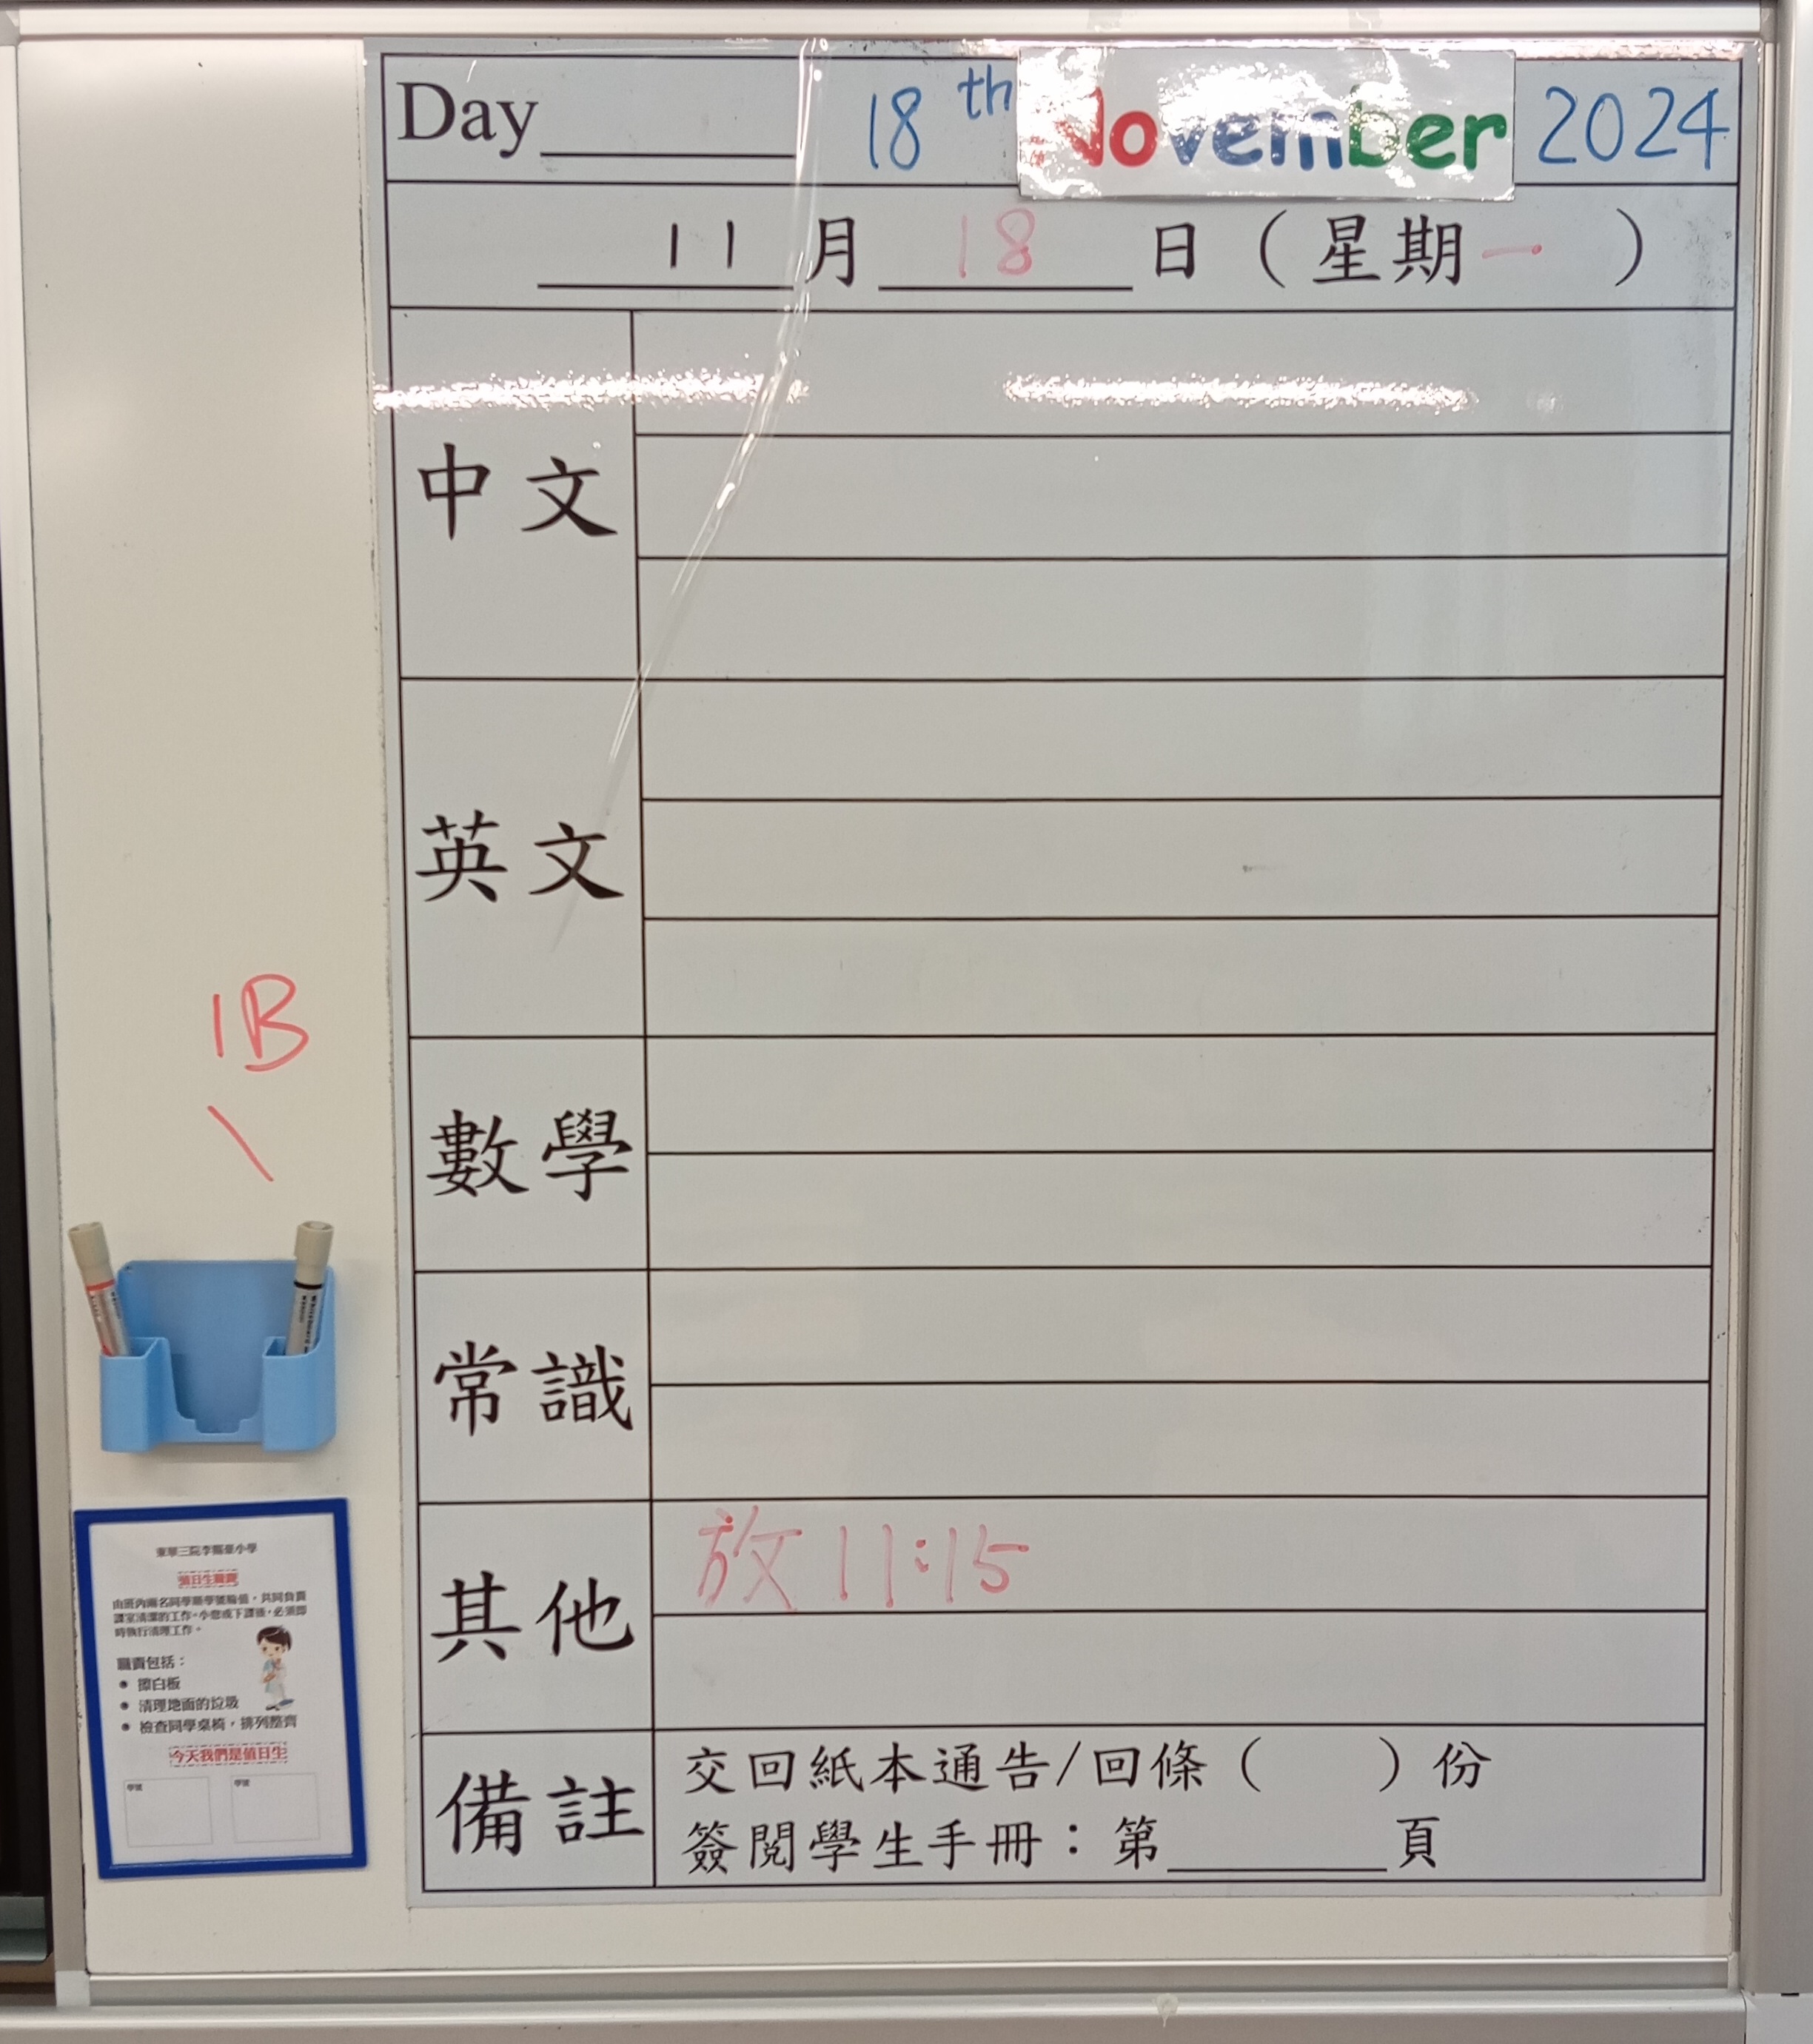 Day______ 18th November 2024
11月18日（星期一）
中文
英文
1B
數學
常識
其他 放11:15
備註 交回紙本通告/回條（ ）份
簽閱學生手冊：第______頁
值日生職責
由班內兩名同學順學號輪值，共同負責
課室清潔的工作。小息或下課後，必須即
時執行清理工作。
職責包括：
• 擦白板
• 清理地面的垃圾
• 檢查同學桌椅，排列整齊
今天我們是值日生
學號 學號